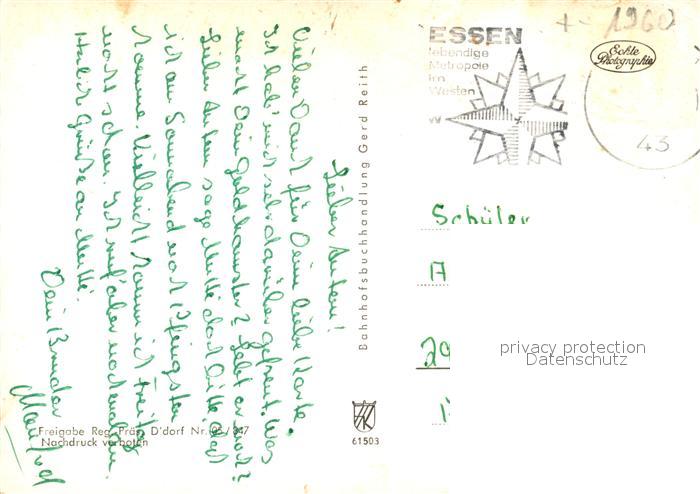 Lieber Anton!
Lieben Dank für Deine liebe Karte.
Ich hab' mich sehr darüber gefreut. Was
macht Dein Goldhamster? Lebt er noch?
Lieber Anton sage Mutti doch bitte, daß
ich am Sonnabend vor Pfingsten
komme. Vielleicht komm ich Freitag
nacht schon. Ich ruf aber noch mal an.
Herzliche Grüße an Mutti!
Dein Bruder
Manfred
Freigabe Reg. Präs. D'dorf Nr. 05/347
Nachdruck verboten
Bahnhofsbuchhandlung Gerd Reith
61503
ESSEN
lebendige
Metropole
im
Westen
W
+- 1960
Echte
Photographie
43
Schüler
A
29
privacy protection
Datenschutz